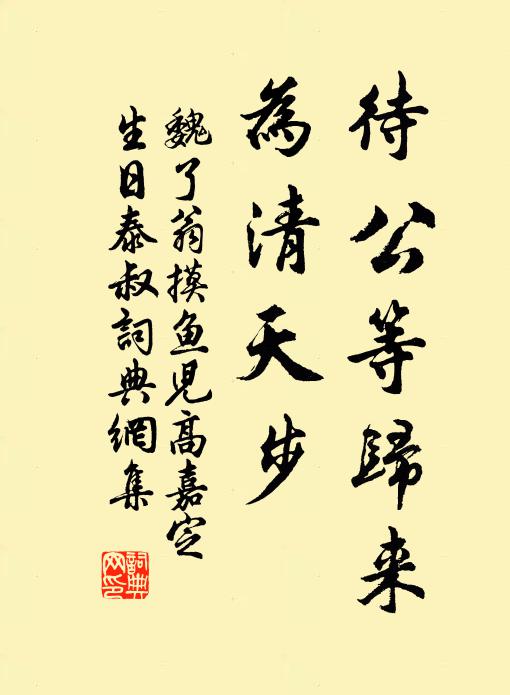 待公等歸来
為清天步
魏了翁摸鱼児高嘉定
生日泰叔詞典網集
詞典网印